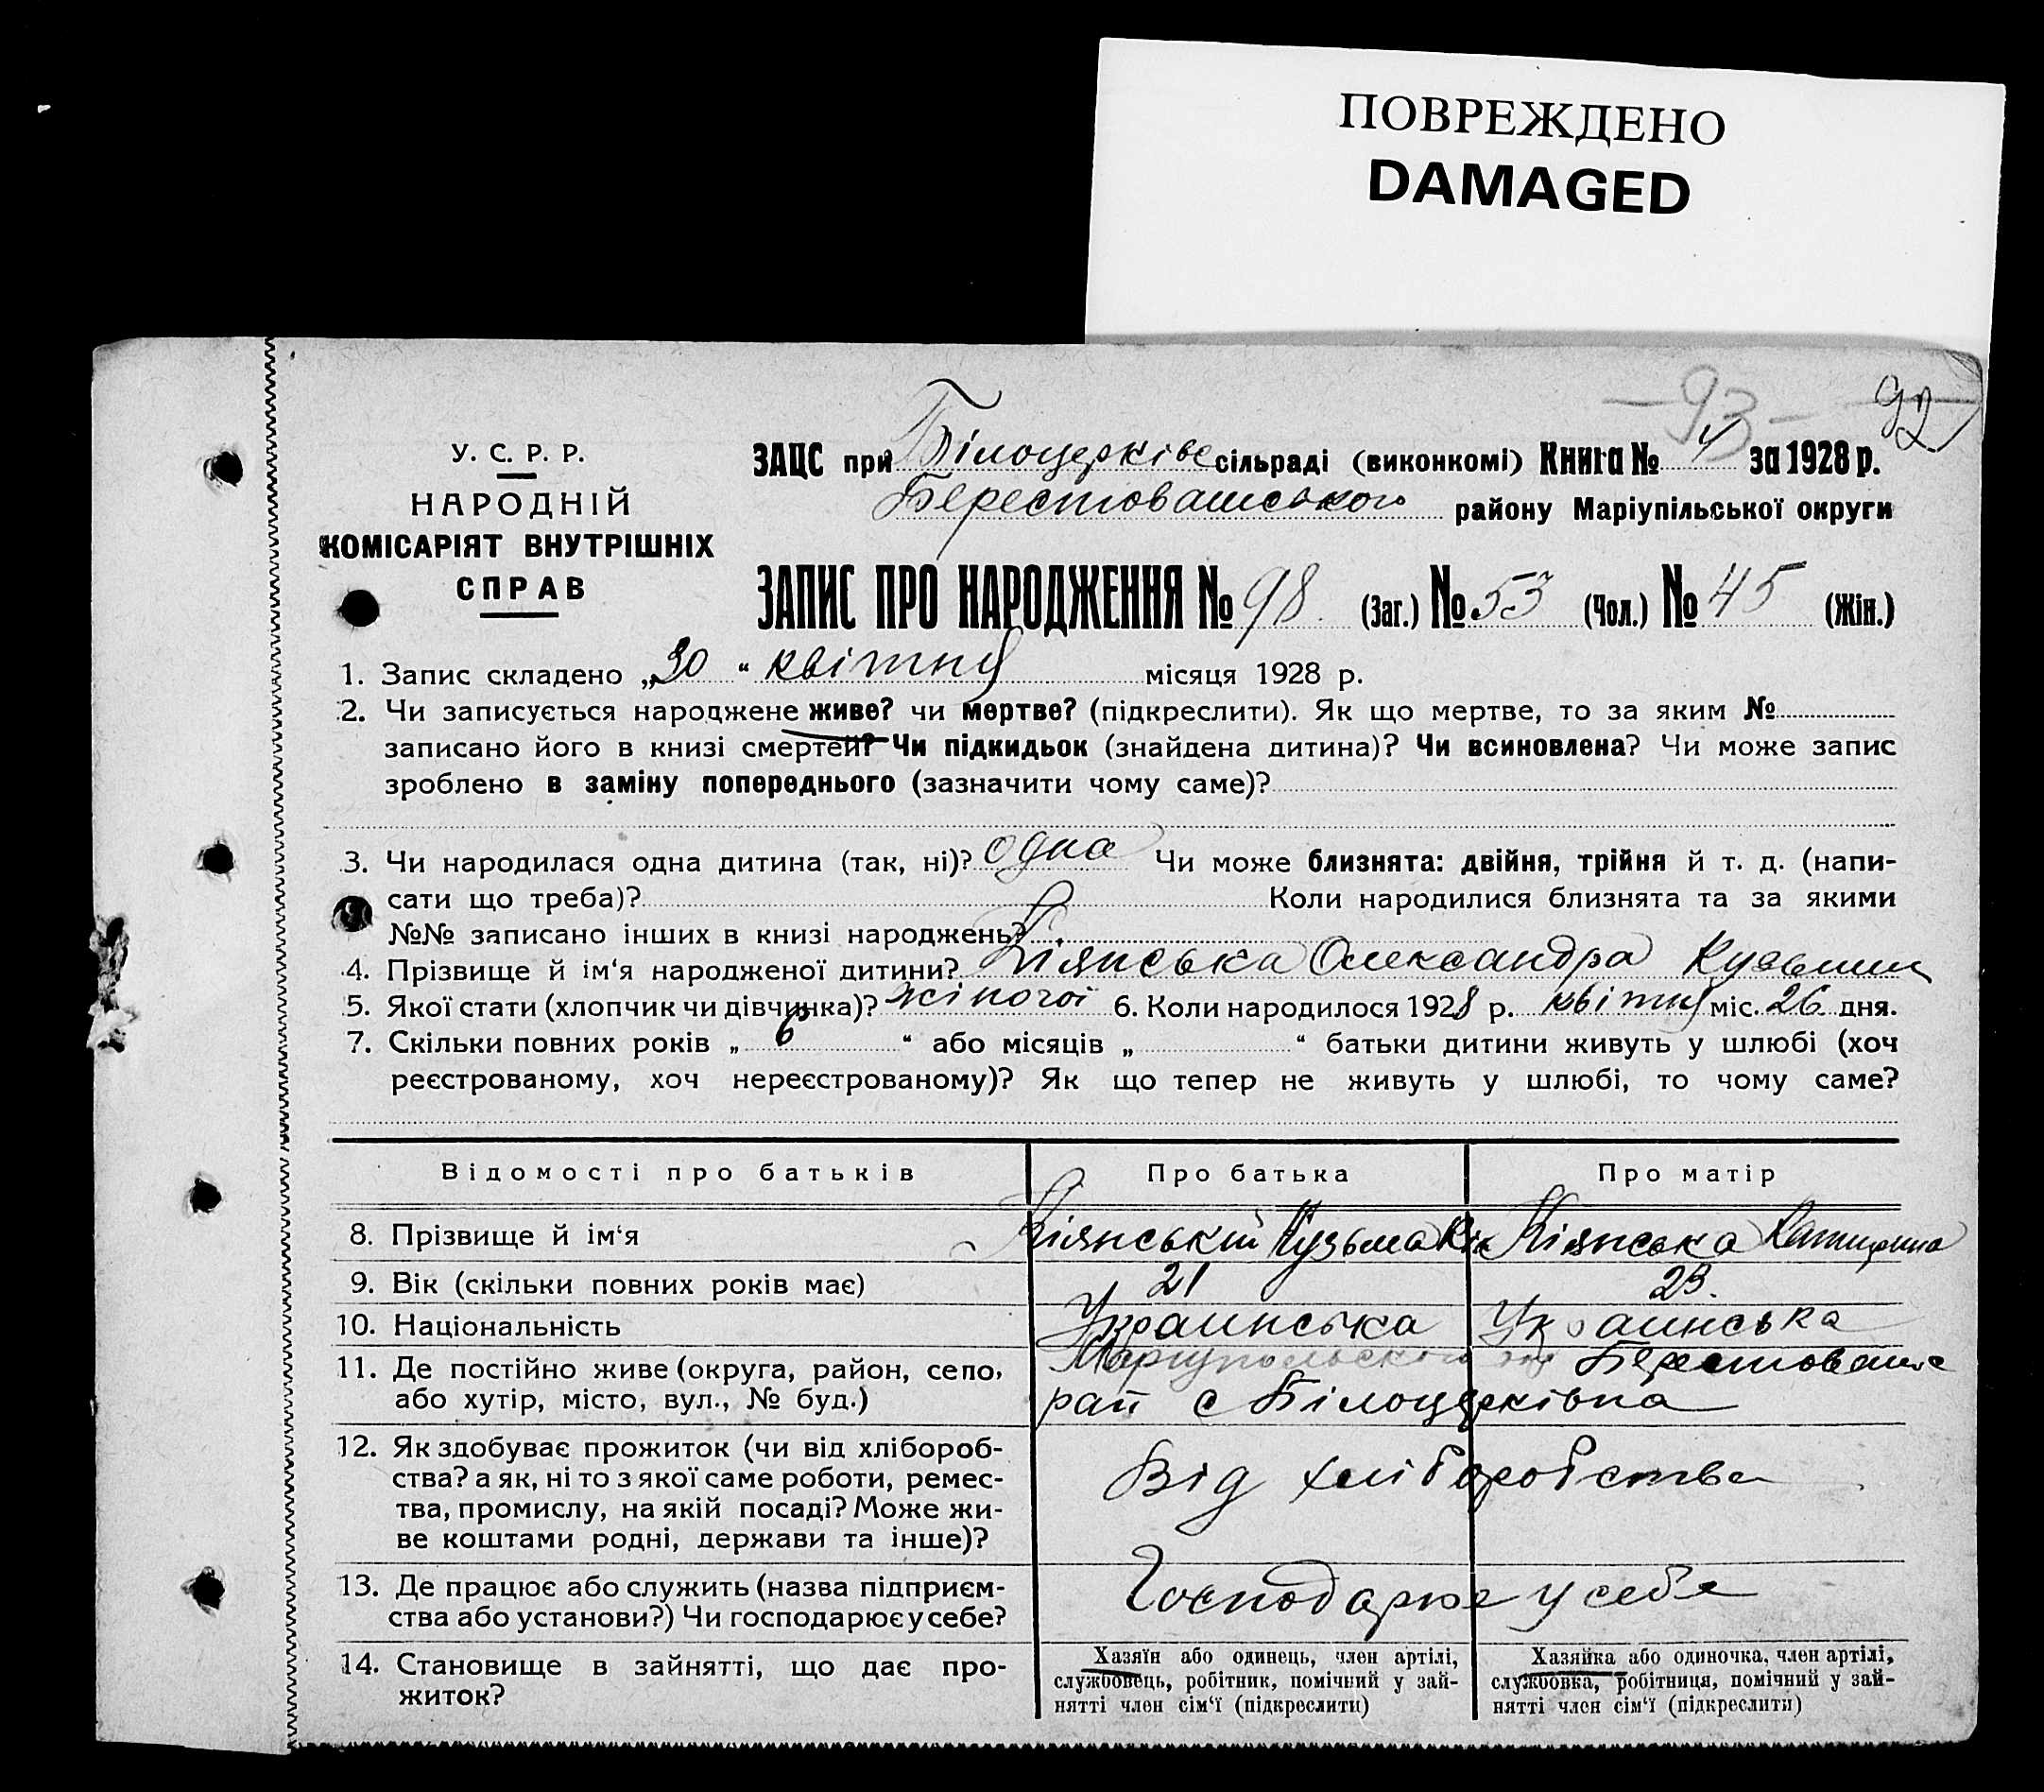 ПОВРЕЖДЕНО
DAMAGED
93 92
У. С. Р. Р.
НАРОДНІЙ
КОМІСАРІЯТ ВНУТРІШНІХ
СПРАВ
ЗАЦС при Білоцерківс сільраді (виконкомі) Книга № 4 за 1928 р.
Берестоваського району Маріупільської округи
ЗАПИС ПРО НАРОДЖЕННЯ № 98 (Заг.) № 53 (Чол.) № 45 (Жін.)
1. Запис складено „30“ квітня місяця 1928 р.
2. Чи записується народжене живе? чи мертве? (підкреслити). Як що мертве, то за яким №
записано його в книзі смертей? Чи підкидьок (знайдена дитина)? Чи всиновлена? Чи може запис
зроблено в заміну попереднього (зазначити чому саме)?
3. Чи народилася одна дитина (так, ні)? одна Чи може близнята: двійня, трійня й т. д. (напи-
сати що треба)? Коли народилися близнята та за якими
№№ записано інших в книзі народжень?
4. Прізвище й ім‘я народженої дитини? Кіянська Олександра
5. Якої стати (хлопчик чи дівчинка)? жіночої 6. Коли народилося 1928 р. квітня міс. 26 дня.
7. Скільки повних років „ 6 “ або місяців „ “ батьки дитини живуть у шлюбі (хоч
реєстрованому, хоч нереєстрованому)? Як що тепер не живуть у шлюбі, то чому саме?
Відомості про батьків Про батька Про матір
8. Прізвище й ім‘я Кіянський Кузьма Кіянська Катирина
9. Вік (скільки повних років має) 21 23.
10. Національність Украинська Украинська
11. Де постійно живе (округа, район, село, Маріупольського Берестованс
або хутір, місто, вул., № буд.) рай с Білоцерківка
12. Як здобуває прожиток (чи від хлібороб-
ства? а як, ні то з якої саме роботи, ремес- Від хліборобства
тва, промислу, на якій посаді? Може жи-
ве коштами родні, держави та інше)?
13. Де працює або служить (назва підприєм- Господарює у себе
ства або установи?) Чи господарює у себе?
14. Становище в зайнятті, що дає про-
житок?
Хазяїн або одинець, член артілі,
службовець, робітник, помічний у зай-
нятті член сім‘ї (підкреслити)
Хазяйка або одиночка, член артілі,
службовка, робітниця, помічний у зай-
нятті член сім‘ї (підкреслити)